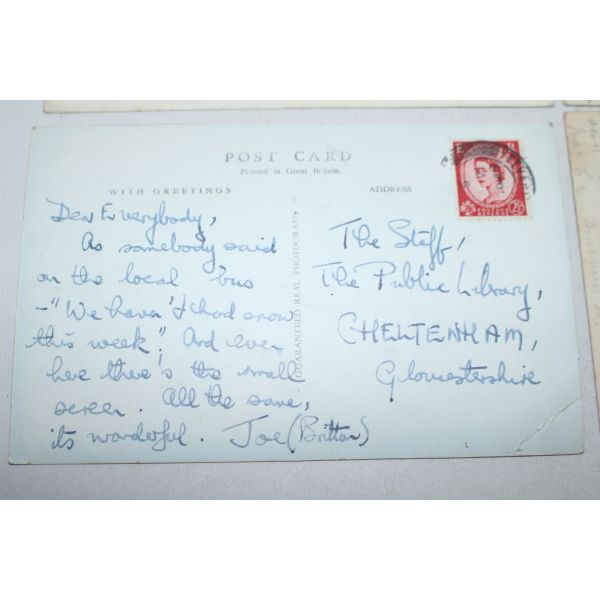 POST CARD
Printed in Great Britain.
WITH GREETINGS
ADDRESS
Dear Everybody,
As somebody said
on the local bus
-"We haven't had snow
this week". And even
here there's the small
screen. All the same,
its wonderful. Joe (Britton)
GUARANTEED REAL PHOTOGRAPH
The Staff,
The Public Library,
CHELTENHAM,
Gloucestershire
2½